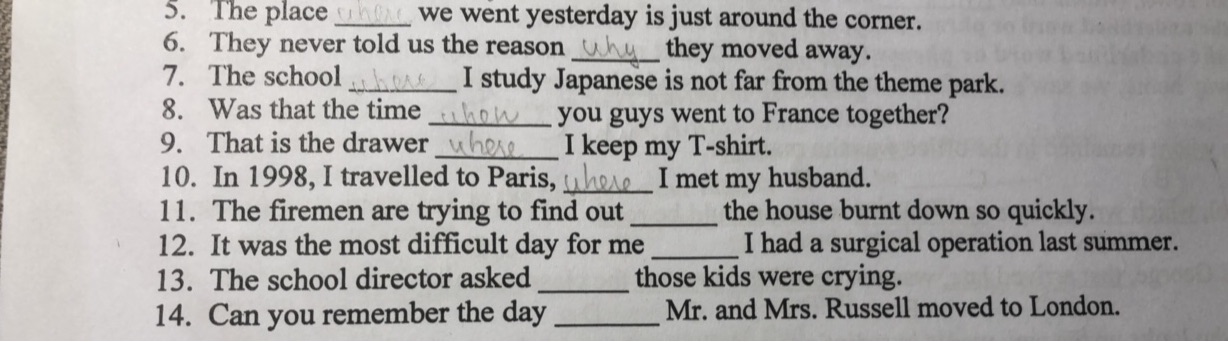 5. The place where we went yesterday is just around the corner.
6. They never told us the reason why they moved away.
7. The school where I study Japanese is not far from the theme park.
8. Was that the time when you guys went to France together?
9. That is the drawer where I keep my T-shirt.
10. In 1998, I travelled to Paris, where I met my husband.
11. The firemen are trying to find out ______ the house burnt down so quickly.
12. It was the most difficult day for me ______ I had a surgical operation last summer.
13. The school director asked ______ those kids were crying.
14. Can you remember the day ______ Mr. and Mrs. Russell moved to London.